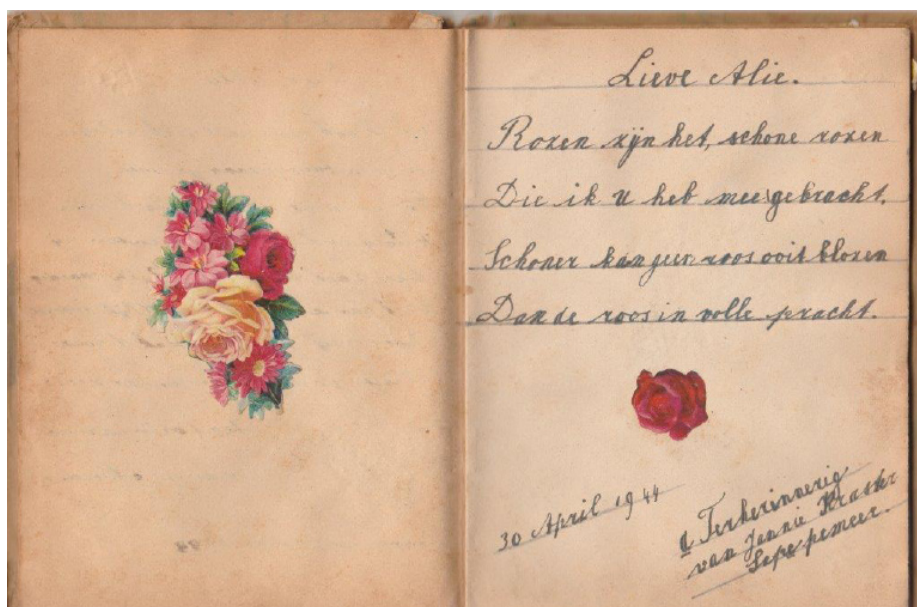 Lieve Alie.
Rozen zijn het, schone rozen
Die ik u heb mee gebracht.
Schoner kan geen roos ooit blozen
Dan de roos in volle pracht.
30 April 1944
Terherinnerig
van Jennie
Sappemeer.